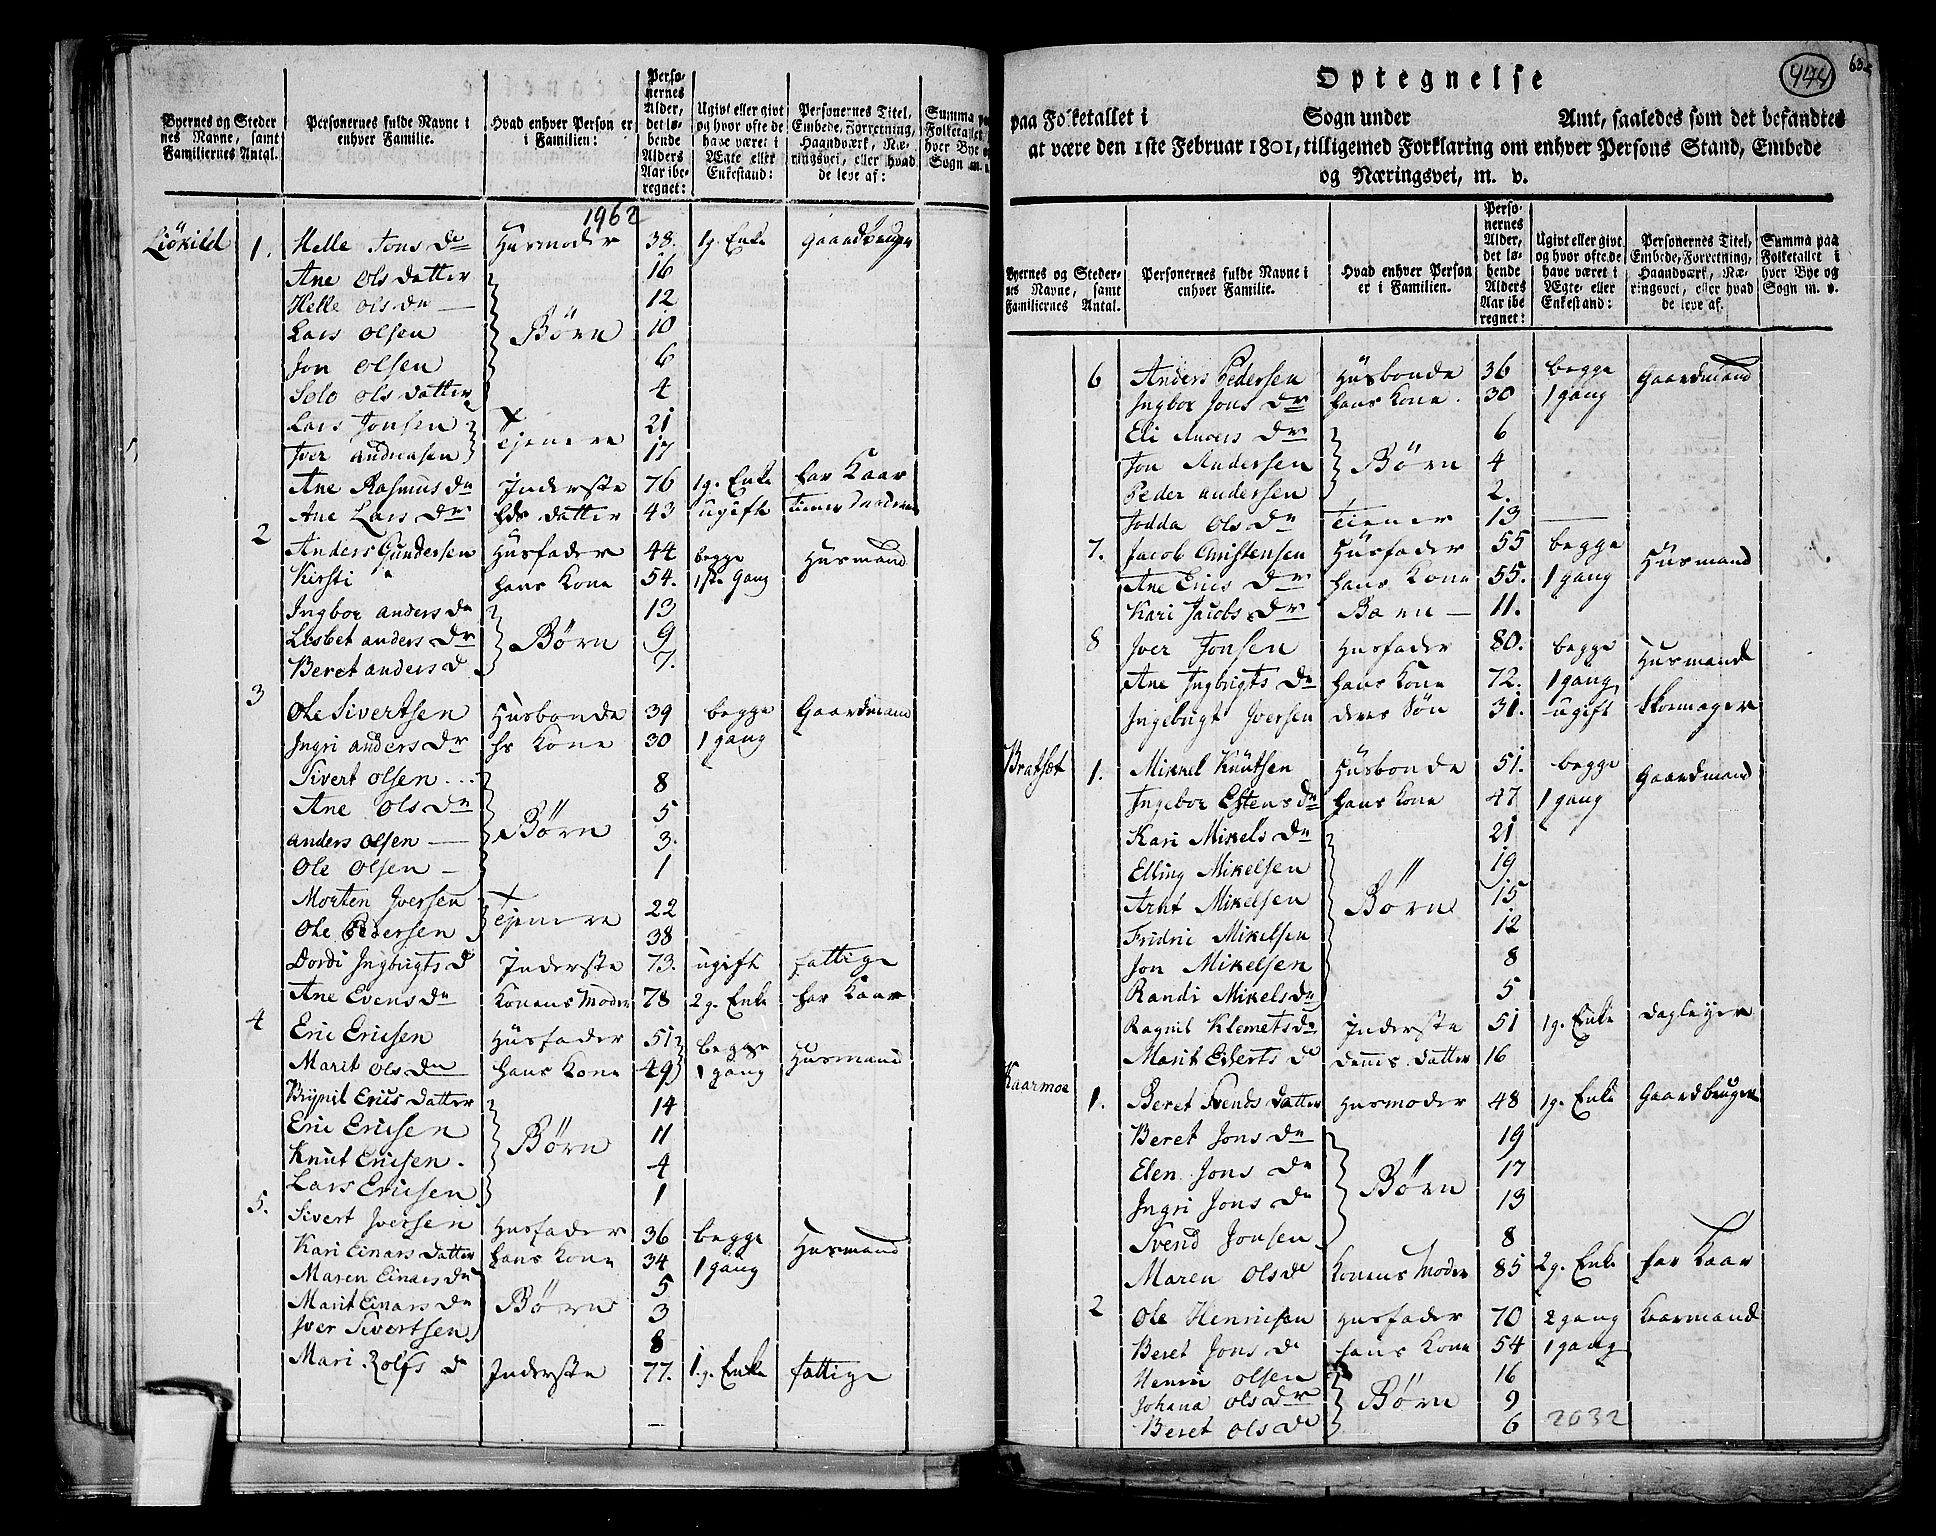 Byernes og Stedernes Navne, samt Familiernes Antal.
Personernes fulde Navne i enhver Familie.
Hvad enhver Person er i Familien:
Personernes Alder, det løbende Alders Aar iberegnet:
Ugivt eller givt og hvor ofte de have været i Ægte eller Enkestand:
Personernes Titel, Embede, Forretning, Haandværk, Næringsvei, eller hvad de leve af:
Summa paa Folketallet i hver Bye og Sogn m. v.
1962
Liökild 1. Helle Jons Dr Husmoder 38. 1 g. Enke Gaardbruger
Ane Ols Datter 16
Helle Ols Dr 12
Lars Olsen Børn 10
Jon Olsen 6
Solo Ols Datter 4
Lars Jonsen Tjenere 21
Iver Andreasen 17
Ane Rasmus Dr Inderste 76 1 g. Enke har Kaar
Ane Lars Dr hds Datter 43 ugift
2 Anders Gundersen Husfader 44 begge Husmand
Kirsti " hans Kone 54. 1ste Gang
Ingbor Anders Dr 13
Lisbet Anders Dr Børn 9
Beret Anders D 7.
3 Ole Sivertsen Husbonde 39 begge Gaardmand
Ingri Anders Dr hs Kone 30 1 gang
Sivert Olsen 8
Ane Ols Dr Børn 5
Anders Olsen 3.
Ole Olsen 1
Morten Iversen Tjenere 22
Ole Pedersen 38
Dordi Ingbrigts D Inderste 73. ugift fattige
Ane Evens Dr Konens Moder 78 2 g. Enke har Kaar
4 Eric Ericsen Husfader 51 begge Husmand
Marit Ols Dr hans Kone 49 1 gang
Brynil Erics Datter 14
Eric Ericsen Børn 11
Knut Ericsen. 4
Lars Ericsen 1
5. Sivert Iversen Husfader 36 begge Husmand
Kari Einars Datter hans Kone 34 1 gang
Maren Einars Dr 5
Marit Einars Dr Børn 3
Iver Sivertsen 8
Mari Rolfs D Inderste 77. 1 g. Enke fattige
Optegnelse
paa Folketallet i Sogn under Amt, saaledes som det befandtes
at være den 1ste Februar 1801, tilligemed Forklaring om enhver Persons Stand, Embede
og Næringsvei, m. v.
Byernes og Stedernes Navne, samt Familiernes Antal.
Personernes fulde Navne i enhver Familie.
Hvad enhver Person er i Familien.
Personernes Alder, det løbende Alders Aar iberegnet:
Ugivt eller givt og hvor ofte de have været i Ægte- eller Enkestand:
Personernes Titel, Embede, Forretning, Haandværk, Næringsvei, eller hvad de leve af.
Summa paa Folketallet i hver Bye og Sogn m. v.
6 Anders Pedersen Husbonde 36 begge Gaardmand
Ingbor Jons Dr hans Kone. 30 1 gang
Eli Anders Dr 6
Jon Andersen Børn 4
Peder Andersen 2.
Jodda Ols Dr Teiener 13
7. Jacob Christensen Husfader 55 begge Husmand
Ane Erics Dr hans Kone 55. 1 gang
Kari Jacobs Dr Børn 11.
8 Iver Jonsen Husfader 80. begge Husmand
Ane Ingbrigts Dr hans Kone 72. 1 gang
Ingebrigt Iversen deres Søn 31. ugift Skomager
Bratset 1. Mikkel Knutsen Husbonde 51. begge Gaardmand
Ingebor Estens Dr hans Kone 47 1 gang
Kari Mikels Dr 21
Elling Mikelsen 19
Arnt Mikelsen Børn 15
Fridric Mikelsen 12
Jon Mikelsen 8
Randi Mikels Dr 5
Ragnil Klemets Dr Inderste 51 1 g. Enke Dagleyer
Marit Everts D dennes Datter 16
Kaarmoe 1. Beret Svends Datter Husmoder 48 1 g. Enke Gaardbruger
Beret Jons Dr 19
Elen Jons Dr Børn 17
Ingri Jons Dr 13
Svend Jonsen 8
Maren Ols D Konens Moder 85 2 g. Enke har Kaar
2 Ole Henricsen Husfader 70 2 gang Kaarmand
Beret Jons D hans Kone 54 1 gang
Henric Olsen 16
Johana Ols Dr Børn 9
Beret Ols D 6
2032